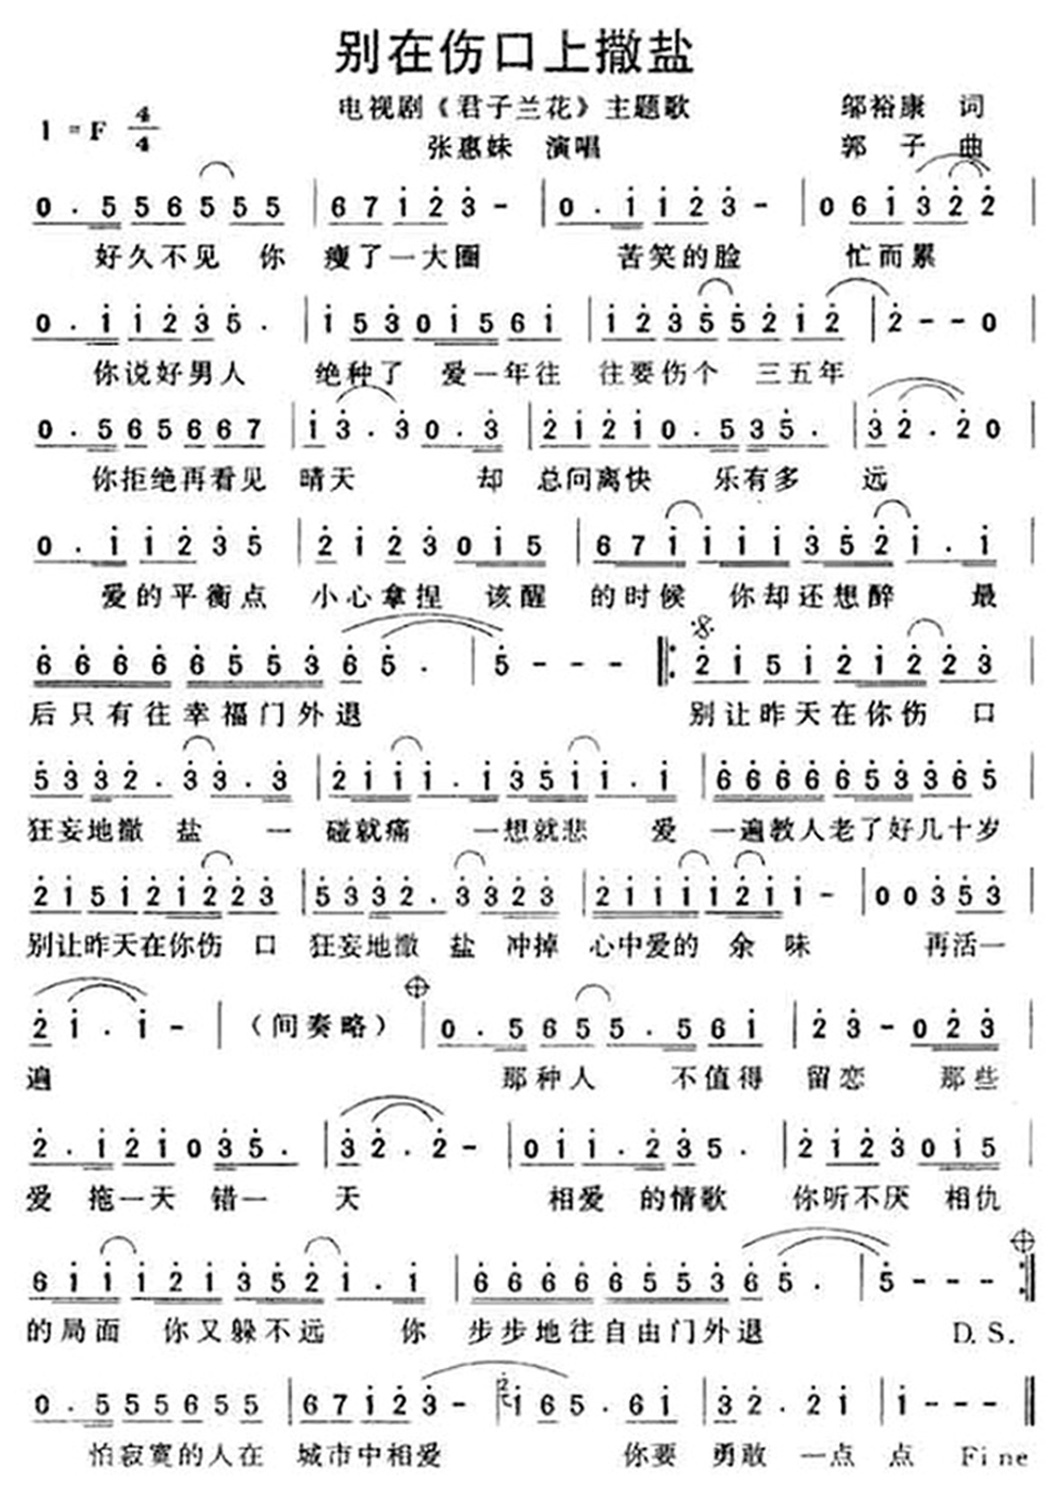 别在伤口上撒盐
电视剧《君子兰花》主题歌
邬裕康 词
1=F 4/4
张惠妹 演唱
郭子 曲
0.556555 | 67123- | 0.1123- | 061322 |
好久不见 你 瘦了一大圈 苦笑的脸 忙而累
0.11235. | 15301561 | 12355212 | 2--0
你说好男人 绝种了 爱一年往 往要伤个 三五年
0.5656667 | 13.30.3 | 21210.535. | 32.20 |
你拒绝再看见 晴天 却 总问离快 乐有多 远
0.11235 | 2123015 | 6711113521.1 |
爱的平衡点 小心拿捏 该醒 的时候 你却还想醉 最
6666655365. | 5--- |: 2151212223 |
后只有往幸福门外退 别让昨天在你伤 口
5332.33.3 | 2111.13511.1 | 66666533365 |
狂妄地撒 盐 一 碰就痛 一想就悲 爱 一遍教人老了好几十岁
2151212223 | 5332.3323 | 211112111- | 00353
别让昨天在你伤 口 狂妄地撒 盐 冲掉 心中爱的 余 味 再活一
21.1- | (间奏略) | 0.5655.561 | 23-023
遍 那种人 不值得 留恋 那些
2.121035. | 32.2- | 011.235. | 2123015 |
爱 拖一天 错一 天 相爱 的情歌 你听不厌 相仇
6111213521.1 | 6666655365. | 5--- :|
的局面 你又躲不远 你 步步地往自由门外退 D.S.
0.555655 | 67123- | 165.61 | 32.21 | 1---
怕寂寞的人在 城市中相爱 你要 勇敢 一点 点 Fine